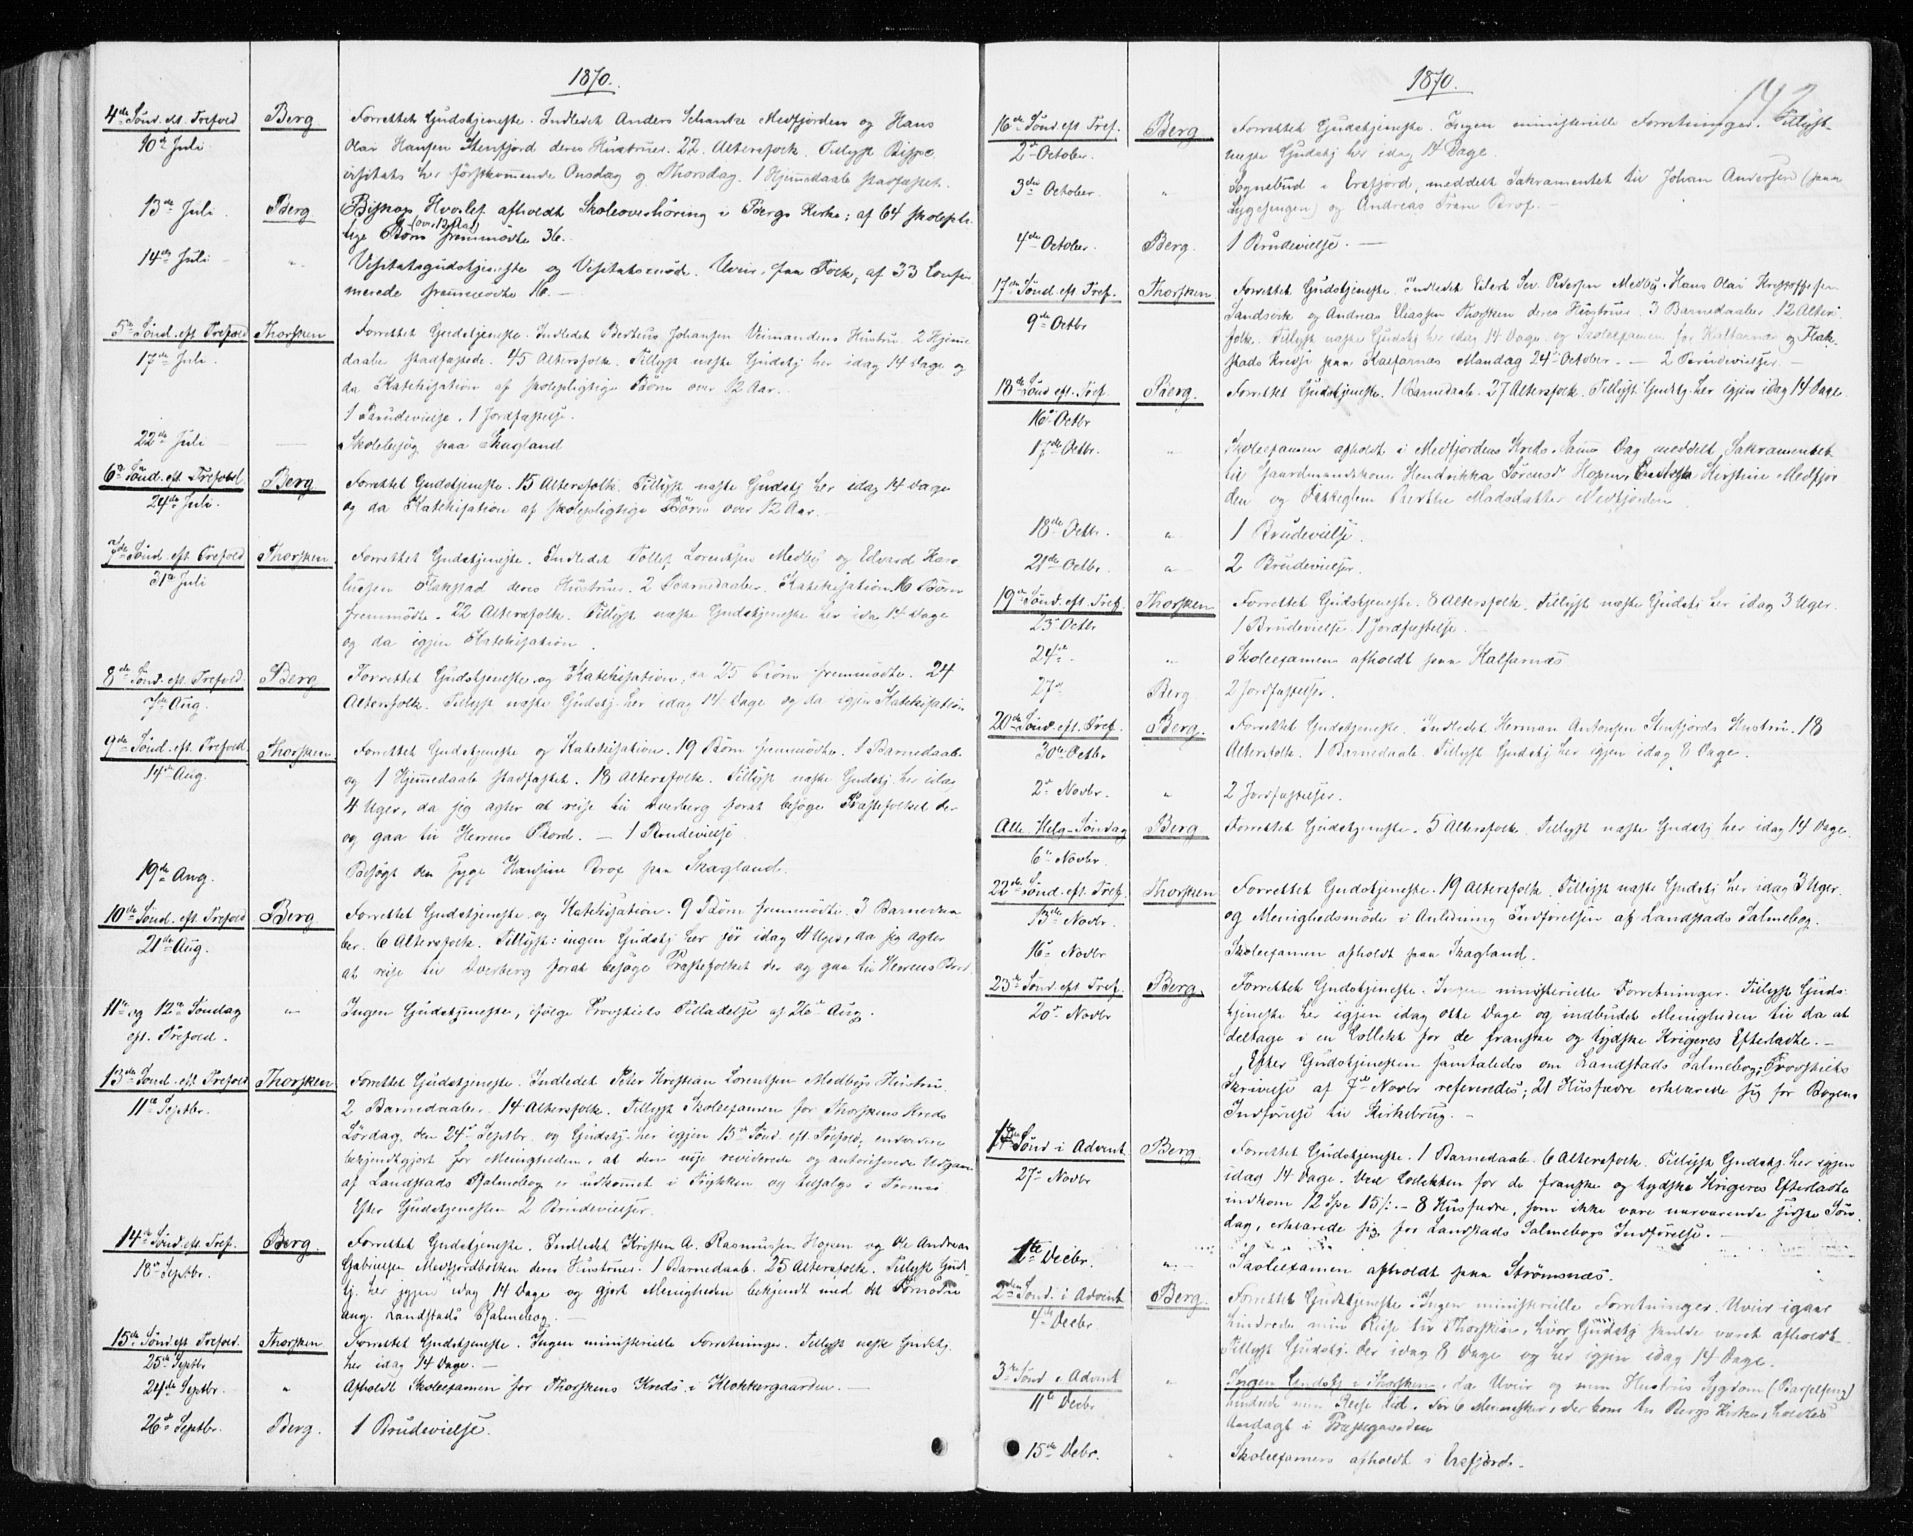 1870.
4de Sönd. eft. Trefold Berg Forrettet Gudstjeneste. Indledet Anders Schanke Medfjorden og Hans
10de Juli Olai Hansen Stenfjord deres Hustruer. 22 Altersfolk. Tillyst Bispe
visitats her förstkommende Onsdag og Thorsdag. 1 Hjemmedaab stadfæstet.
13de Juli Berg Biskop Hvoslef afholdt Skoleoverhöring i Bergs Kirke; af 64 skolepli-
tige Börn fremmödte 36.
14de Juli " Visitatsgudstjeneste og Visitatsmöde. Uveir, faa Folk, af 33 Confir
merede fremmödte 16.
5te Sönd. eft. Trefold Thorsken Forrettet Gudstjeneste. Indledet Bertheus Johansen Veimandens Hustru. 2 Hjemme
17de Juli daabe stadfæstede. 45 Altersfolk. Tillyst næste Gudstj her idag 14 Dage og
da Katekisation af skolepligtige Börn over 12 Aar.
1 Brudevielse. 1 Jordfæstelse.
22de Juli Skolebesög paa Skagland
6te Sönd. eft. Trefold Berg Forrettet Gudstjeneste. 15 Altersfolk. Tillyst næste Gudstj her idag 14 Dage
24de Juli og da Katekisation af skolepligtige Börn over 12 Aar.
7de Sönd. eft. Trefold Thorsken Forrettet Gudstjeneste. Indledet Tollef Lorentsen Medby og Edvard
31te Juli Flakstad deres Hustruer. 2 Barnedaaber. Katekisation 16 Börn
fremmödte. 22 Altersfolk. Tillyst næste Gudstjeneste her idag 14 Dage
og da igjen Katekisation.
8de Sönd. eft. Trefold Berg Forrettet Gudstjeneste og Katekisation, 25 Börn fremmödte. 24
7de Aug. Altersfolk. Tillyst næste Gudstj. her idag 14 Dage og da igjen Katekisation
9de Sönd. eft. Trefold Thorsken Forrettet Gudstjeneste og Katekisation. 19 Börn fremmödte. 1 Barnedaab
14de Aug. og 1 Hjemmedaab stadfæstet. 18 Altersfolk. Tillyst næste Gudstj her idag
4 Uger, da jeg agter at reise til Dverberg forat besöge Præstefolket der
og gaa til Herrens Bord. — 1 Brudevielse
19de Aug. Besögt den syge Hansine Brox paa Skagland.
10de Sönd. eft. Trefold Berg Forrettet Gudstjeneste og Katekisation. 9 Börn fremmödte. 3 Barnedaa
21de Aug. ber. 6 Altersfolk. Tillyst: ingen Gudstj her för idag 4 Uger, da jeg agter
at reise til Dverberg forat besöge Præstefolket der og gaa til Herrens Bord.
11te og 12te Söndag " Ingen Gudstjeneste, ifölge Provstiets Tilladelse af 20de Aug.
eft. Trefold.
13de Sönd. eft. Trefold Thorsken Forrettet Gudstjeneste. Indledet Peter Kristian Lorentsen Medbys Hustru.
11te Septbr. 2 Barnedaaber. 14 Altersfolk. Tillyst Skoleexamen for Thorskens Kreds
Lördag den 24de Septbr. og Gudstj. her igjen 15de Sönd. eft. Trefold,
bekjendtgjort for Menigheden, at den nye reviderede og autoriserede Udgave
af Landstads Psalmebog er udkommet i Trykken og tilsalgs i Tromsö
Efter Gudstjenesten 2 Brudevielser.
14de Sönd. eft. Tref. Berg. Forrettet Gudstjeneste. Indledet Kristen A. Rasmussen Hopen og Ole Andreas
18de Septbr. Gabrielsen Medfjordbotten deres Hustruer. 1 Barnedaab. 25 Altersfolk. Tillyst Gud
tj. her igjen idag 14 Dage og gjort Menigheden bekjendt med det Fornödne
ang. Landstads Psalmebog.
15de Sönd. eft. Trefold. Thorsken Forrettet Gudstjeneste. Ingen ministerielle Forretninger. Tillyst næste Gudstj.
25de Septbr her idag 14 Dage. —
24de Septbr. " Afholdt Skoleexamen for Thorskens Kreds i Klokkergaarden.
26de Septbr. Berg. 1 Brudevielse.
1870.
142
16de Sönd. eft Tref. Berg. Forrettet Gudstjeneste. Ingen ministerielle Forretninger. Tillyst
2de October. næste Gudstj her idag 14 Dage.
3die October. " Sognebud i Ersfjord, meddelt Sakramentet til Johan Andersen (paa
Sygesengen) og Andreas Brox.
4de October. Berg. 1 Brudevielse. —
17de Sönd. eft Tref. Thorsken. Forrettet Gudstjeneste. Indledet Eilert Sev. Pedersen Medby, Hans Olai Kristoffersen
9de Octbr Sandvik og Andreas Eliassen Thorsken deres Hustruer. 3 Barnedaaber. 12 Alters
folk. Tillyst næste Gudstj her idag 14 Dage og Skoleexamen for Kalfarnæs og Flak-
stads Kredse paa Kalfarnæs Mandag 24de October. — 2 Brudevielser.
18de Sönd eft. Tref Berg. Forrettet Gudstjeneste. 1 Barnedaab. 27 Altersfolk. Tillyst Gudstj. her igjen idag 14 Dage.
16de Octbr
17de Octbr. " Skoleexamen afholdt i Medfjordens Kreds. Samme Dag meddelt Sakramentet
til Gaardmandskone Hendrikka Hopen, Kirstine Medfjor
den og Fattiglem Berthe Madsdatter Medfjorden
18de Octbr. " 1 Brudevielse.
21de Octbr. " 2 Brudevielser.
19de Sönd. eft Tref. Thorsken Forrettet Gudstjeneste. 8 Altersfolk. Tillyst næste Gudstj her idag 3 Uger.
23de Octbr 1 Brudevielse. 1 Jordfæstelse.
24de " Skoleexamen afholdt paa Kalfarnæs
27de Berg 2 Jordfæstelser.
20de Sönd. eft. Tref. Berg. Forrettet Gudstjeneste. Indledet Herman Antonsen Stenfjords Hustru. 18
30te Octbr Altersfolk. 1 Barnedaab. Tillyst Gudstj her igjen idag 8 Dage.
2de Novbr. " 2 Jordfæstelser.
Alle Helg. Söndag Berg Forrettet Gudstjeneste. 5 Altersfolk. Tillyst næste Gudstj her idag 14 Dage.
6te Novbr.
22de Sönd. eft. Tref. Thorsken Forrettet Gudstjeneste. 19 Altersfolk. Tillyst næste Gudstj her idag 3 Uger
13de Novbr. og Menighedsmöde i Anledning Indförelsen af Landstads Salmebog.
16de Novbr Skoleexamen afholdt paa Skagland.
23de Sönd. eft Tref. Berg. Forrettet Gudstjeneste. Ingen ministerielle Forretninger. Tillyst Guds-
20de Novbr tjeneste her igjen idag otte Dage og indbudet Menigheden til da at
deltage i en Collekt for de franske og tydske Krigeres Efterladte. —
Efter Gudstjenesten samtaledes om Landstads Salmebog; Provstiets
Skrivelse af 7de Novbr refereredes; 21 Husfædre erklærede sig for Bogens
Indförelse til Kirkebrug. —
1ste Sönd i Advent Berg Forrettet Gudstjeneste. 1 Barnedaab. 6 Altersfolk. Tillyst Gudstj. her igjen
27de Novbr idag 14 Dage. Ved Collekten for de franske og tydske Krigeres Efterladte
indkom 12 Spd 15 ß. — 8 Husfædre, som ikke vare nærværende sidste Sön-
dag, erklærede sig for Landstads Salmebogs Indförelse. —
1ste Decbr. " Skoleexamen afholdt paa Strömsnæs.
2den Sönd. i Advent Berg. Forrettet Gudstjeneste. Ingen ministerielle Forretninger. Uveir igaar
4de Decbr. hindrede min Reise til Thorsken, hvor Gudstj skulde været afholdt.
Tillyst Gudstj. der idag 8 Dage og her igjen idag 14 Dage.
3die Sönd i Advent " Ingen Gudstj i Thorsken, da Uveir og min Hustrus Sygdom (Barselseng)
11te Decbr hindrede min Reise did. For 6 Mennesker, der kom til Bergs Kirke, holdtes
Andagt i Præstegaarden
15de Debr. " Skoleexamen afholdt i Ersfjord.